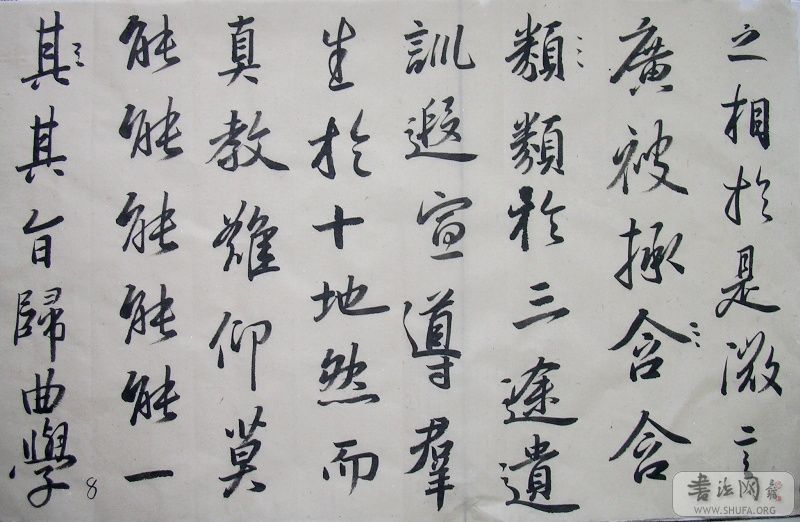 之相於是微言
廣被拯含含
類類於三途遺
訓遐宣導羣
生於十地然而
真教難仰莫
能能能能能一
其其旨歸曲學
8
书法网
WWW.SHUFA.ORG